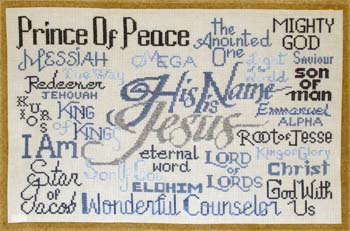 Prince Of Peace
the Anointed One
MIGHTY GOD
MESSIAH
The Way
MEGA
light of the world
Saviour
Redeemer
JEHOVAH
son of man
His Name is Jesus
Emmanuel
KURIOS
KING of KINGS
ALPHA
I Am
Root of Jesse
eternal word
LORD of LORDS
King of Glory
Christ
Star of Jacob
ELOHIM
God With Us
Wonderful Counselor